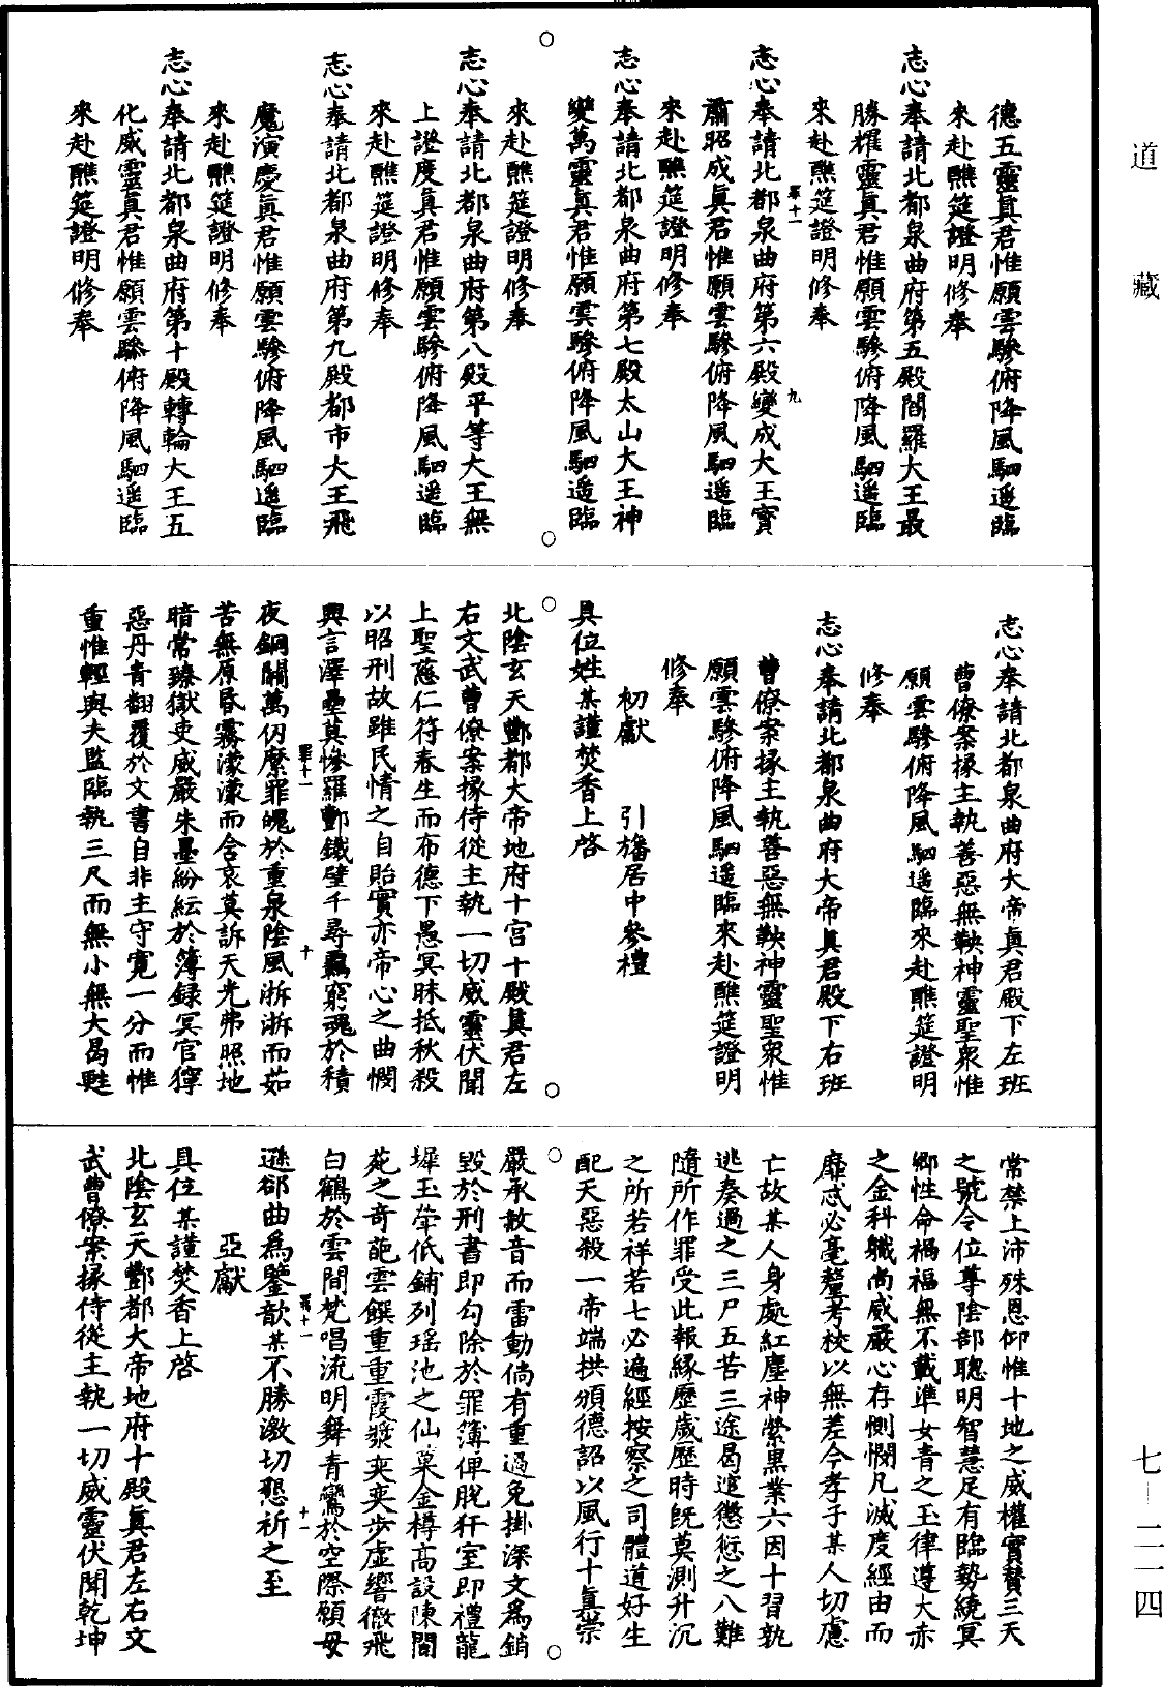 道藏
德五靈真君惟願雲驂俯降風駟遥臨
來赴醮筵證明修奉
志心奉請北都泉曲府第五殿閻羅大王最
勝耀靈真君惟願雲驂俯降風駟遥臨
來赴醮筵證明修奉
志心奉請北都泉曲府第六殿變成大王寳
肅昭成真君惟願雲驂俯降風駟遥臨
來赴醮筵證明修奉
志心奉請北都泉曲府第七殿太山大王神
變萬靈真君惟願雲驂俯降風駟遥臨
來赴醮筵證明修奉
志心奉請北都泉曲府第八殿平等大王無
上證度真君惟願雲驂俯降風駟遥臨
來赴醮筵證明修奉
志心奉請北都泉曲府第九殿都市大王飛
魔演慶真君惟願雲驂俯降風駟遥臨
來赴醮筵證明修奉
志心奉請北都泉曲府第十殿轉輪大王五
化威靈真君惟願雲驂俯降風駟遥臨
來赴醮筵證明修奉
志心奉請北都泉曲府大帝真君殿下左班
曹僚案掾主執善惡無鞅神靈聖衆惟
願雲驂俯降風駟遥臨來赴醮筵證明
修奉
志心奉請北都泉曲府大帝真君殿下右班
曹僚案掾主執善惡無鞅神靈聖衆惟
願雲驂俯降風駟遥臨來赴醮筵證明
修奉
初獻 引旛居中參禮
具位姓某謹焚香上啓
北陰玄天酆都大帝地府十宫十殿真君左
右文武曹僚案掾侍從主執一切威靈伏聞
上聖慈仁符春生而布德下愚冥昧抵秋殺
以昭刑故雖民情之自貽實亦帝心之曲憫
興言澤壘莫慘羅酆鐵壁千尋羈窮魂於積
夜銅關萬仞縻罪魄於重泉陰風淅淅而茹
苦無原昏霧濛濛而含哀莫訴天光弗照地
暗常臻獄吏威嚴朱墨紛紜於簿録冥官獰
惡丹青翻覆於文書自非主守寛一分而惟
重惟輕與夫監臨執三尺而無小無大曷甦
常禁上沛殊恩仰惟十地之威權實賛三天
之號令位尊陰部聰明智慧足有臨勢統冥
鄉性命禍福無不載準女青之玉律遵大赤
之金科職尚威嚴心存惻憫凡滅度經由而
靡忒必毫釐考校以無差今孝子某人切慮
亡故某人身處紅塵神縈黒業六因十習孰
逃奏過之三尸五苦三途曷逭懲愆之八難
隨所作罪受此報緣歷歲歷時旣莫測升沉
之所若祥若七必遍經按察之司體道好生
配天惡殺一帝端拱頒德詔以風行十真崇
嚴承赦音而雷動倘有重過免掛深文爲銷
毀於刑書即勾除於罪簿俾脫犴室即禮龍
墀玉犖低鋪列瑶池之仙菓金樽高設陳閬
苑之奇葩雲饌重重霞漿奕奕步虛響徹飛
白鶴於雲間梵唱流明舞青鸞於空際願毋
遜郤曲爲鑒歆某不勝激切懇祈之至
亞獻
具位某謹焚香上啓
北陰玄天酆都大帝地府十殿真君左右文
武曹僚案掾侍從主執一切威靈伏聞乾坤
七—二一四